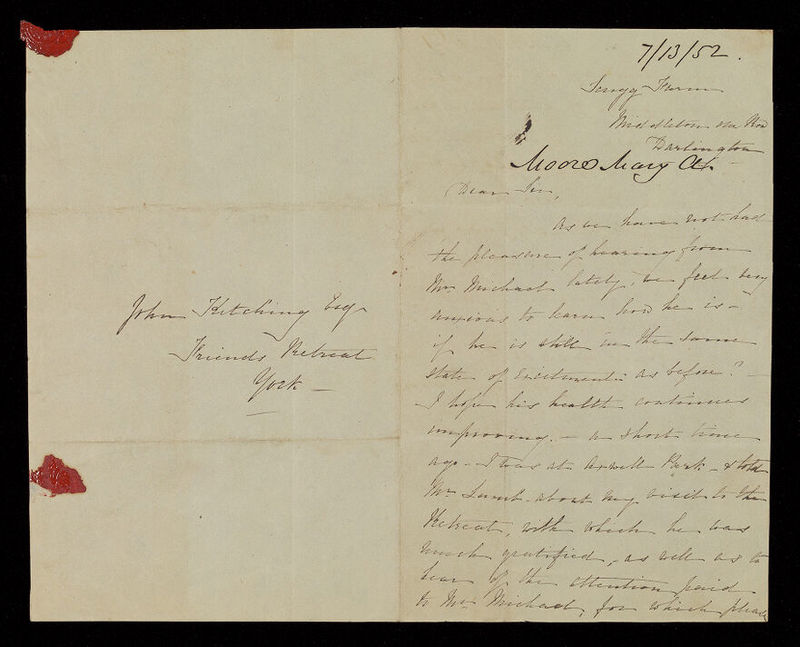 John Kitching Esq
Friends Retreat
York
7/13/52.
Farm
Middleton
Darlington
Moore Mary A.
Dear Sir,
As we have not had
the pleasure of hearing from
Mr. Michael lately, we feel very
anxious to learn how he is –
if he is still in the same
state of Excitement as before? –
I hope his health continues
improving. – a short time
ago – I was at Axwell Park – & told
Mr Lamb about my visit to the
Retreat, with which he was
much gratified, as well as to
hear of the attention paid
to Mr. Michael, for which please